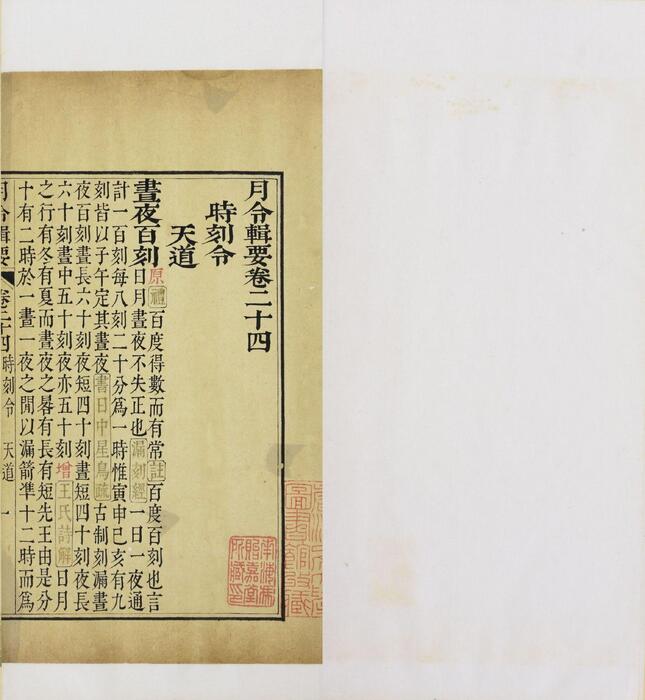 月令輯要卷二十四
時刻令
天道
晝夜百刻原禮百度得數而有常註百度百刻也言
日月晝夜不失正也漏刻經一日一夜通
計一百刻每八刻二十分爲一時惟寅申巳亥有九
刻皆以子午定其晝夜書日中星鳥疏古制刻漏晝
夜百刻晝長六十刻夜短四十刻晝短四十刻夜長
六十刻晝中五十刻夜亦五十刻增王氏詩解日月
之行有冬有夏而晝夜之晷有長有短先王由是分
十有二時於一晝一夜之閒以漏箭準十二時而爲
月令輯要 卷二十四 時刻令 天道 一
圖書館收藏